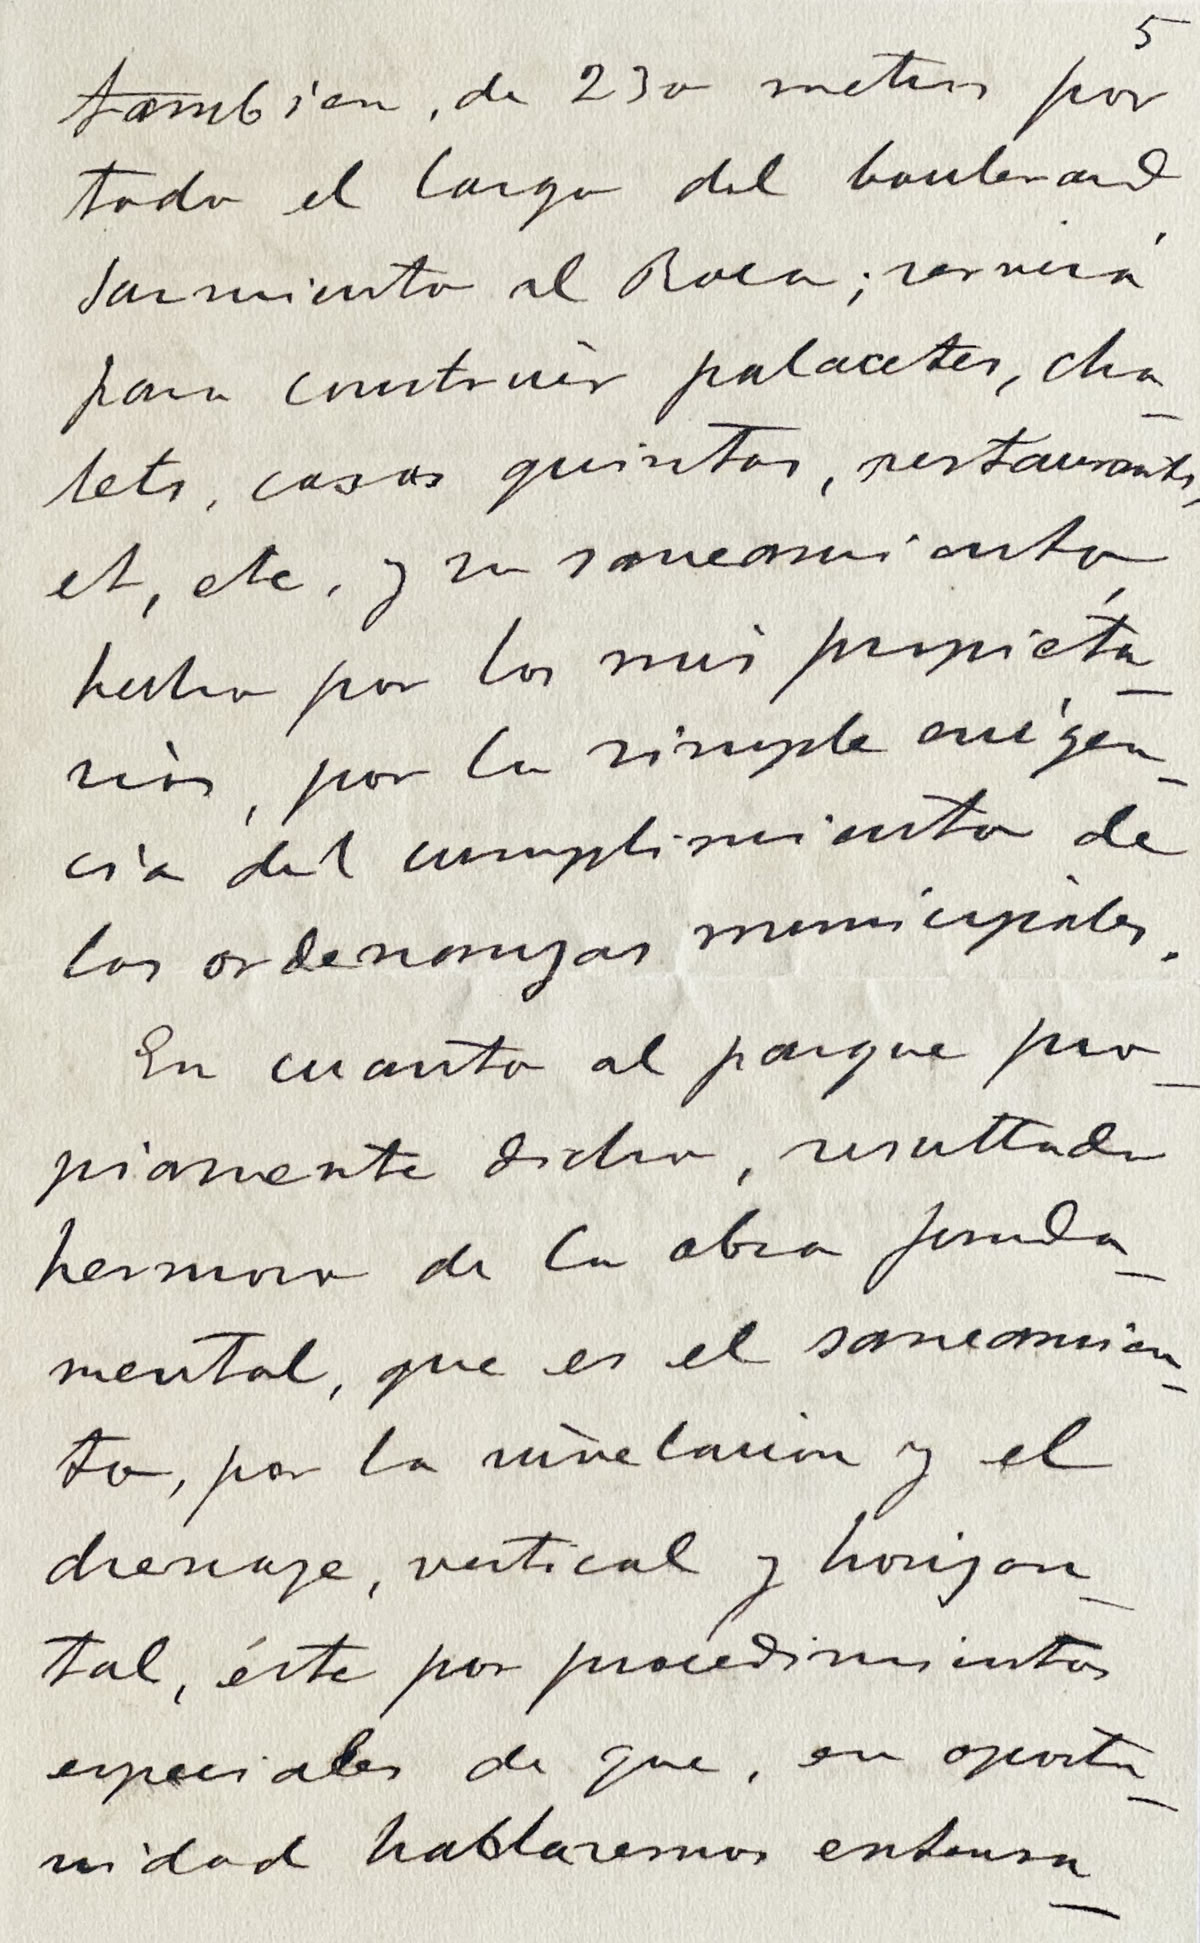 5
tambien, de 230 metros por
todo el largo del boulevard
Sarmiento al Roca; servirá
para construir palacetes, cha-
lets, casas quintas, restaurants,
et, etc, y su saneamiento,
hecho por los mis propieta-
rios, por la simple exigen-
cia del cumplimiento de
las ordenanzas municipales.
En cuanto al parque pro-
piamente dicho, resultado
hermoso de la obra funda-
mental, que es el saneamien-
to, por la nivelacion y el
drenage, vertical y horizon-
tal, éste por procedimientos
especiales de que, en oportu-
nidad hablaremos entensa-